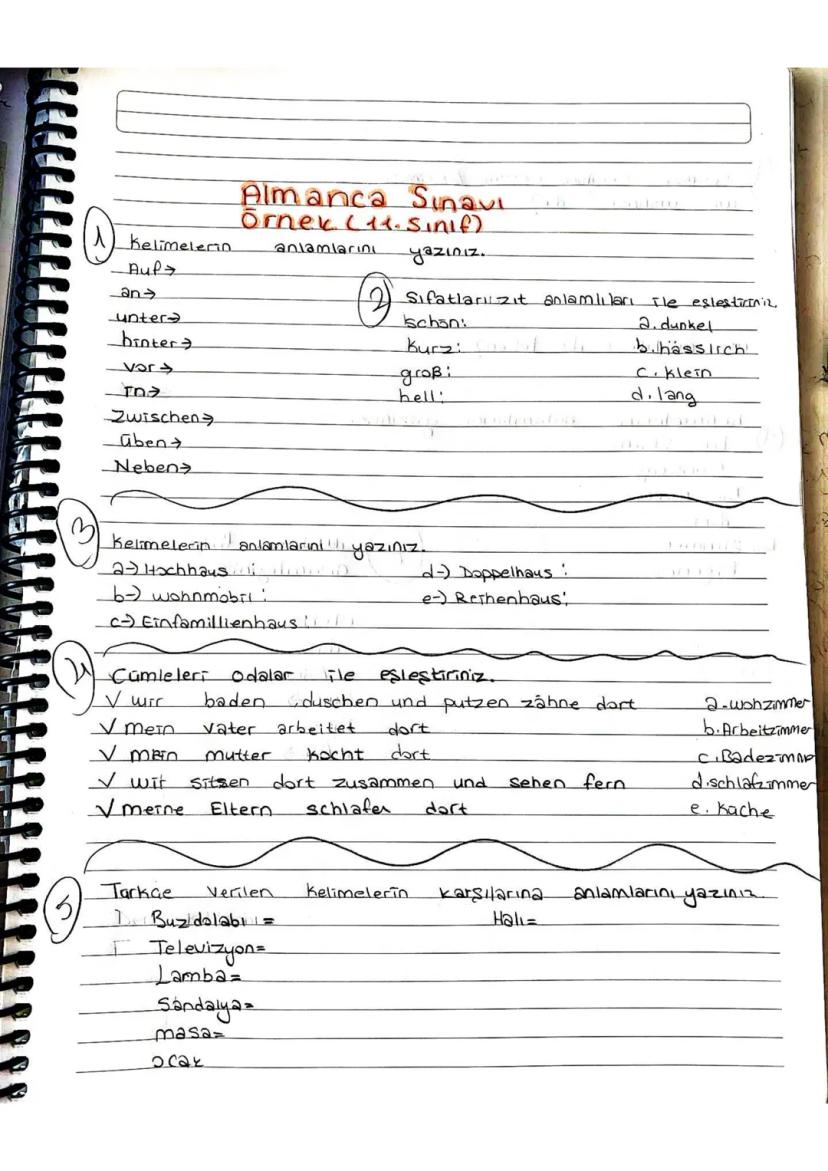 Almanca Sınavı
Örnek (11. Sınıf)
1 Kelimelerin anlamlarını yazınız.
Auf→
an→
unter→
hinter→
vor→
in→
Zwischen→
üben→
Neben→
2 Sıfatları zıt anlamlıları ile eşleştiriniz
schön: a. dunkel
kurz: b. hässlich
groß: c. klein
hell: d. lang
3 Kelimelerin anlamlarını yazınız.
a→) Hochhaus : d→) Doppelhaus :
b→) wohnmobil : e→) Reihenhaus:
c→) Einfamillienhaus :
4 Cümleleri odalar ile eşleştiriniz.
√ wir baden duschen und putzen zähne dort a-wohzimmer
√ mein vater arbeitet dort b. Arbeitzimmer
√ mein mutter kocht dort c. Badezimmer
√ wir sitsen dort zusammen und sehen fern d. schlafzimmer
√ meine Eltern schlafen dort e. küche
5 Türkçe verilen kelimelerin karşılarına anlamlarını yazınız.
Buzdolabı = Halı=
Televizyon=
Lamba=
Sandalya=
masa=
ocak